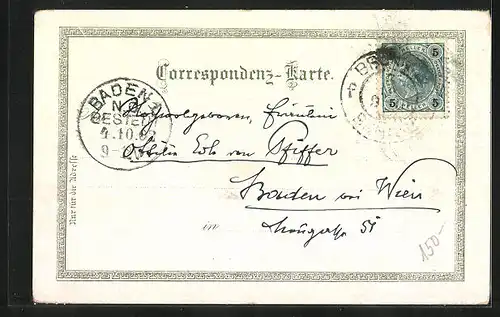 Correspondenz-Karte.
5 5
5 5
BADEN
N.Ö.
BESTELLT
4.10.
9-
Hochwolgeboren, Fräulein
Ottilie Edle von Pfiffer
Baden bei Wien
in
51
Nur für die Adresse
150-